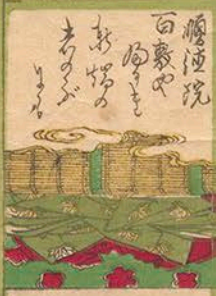 順徳院
百敷や
ふるき
軒端の
志のぶ
にも